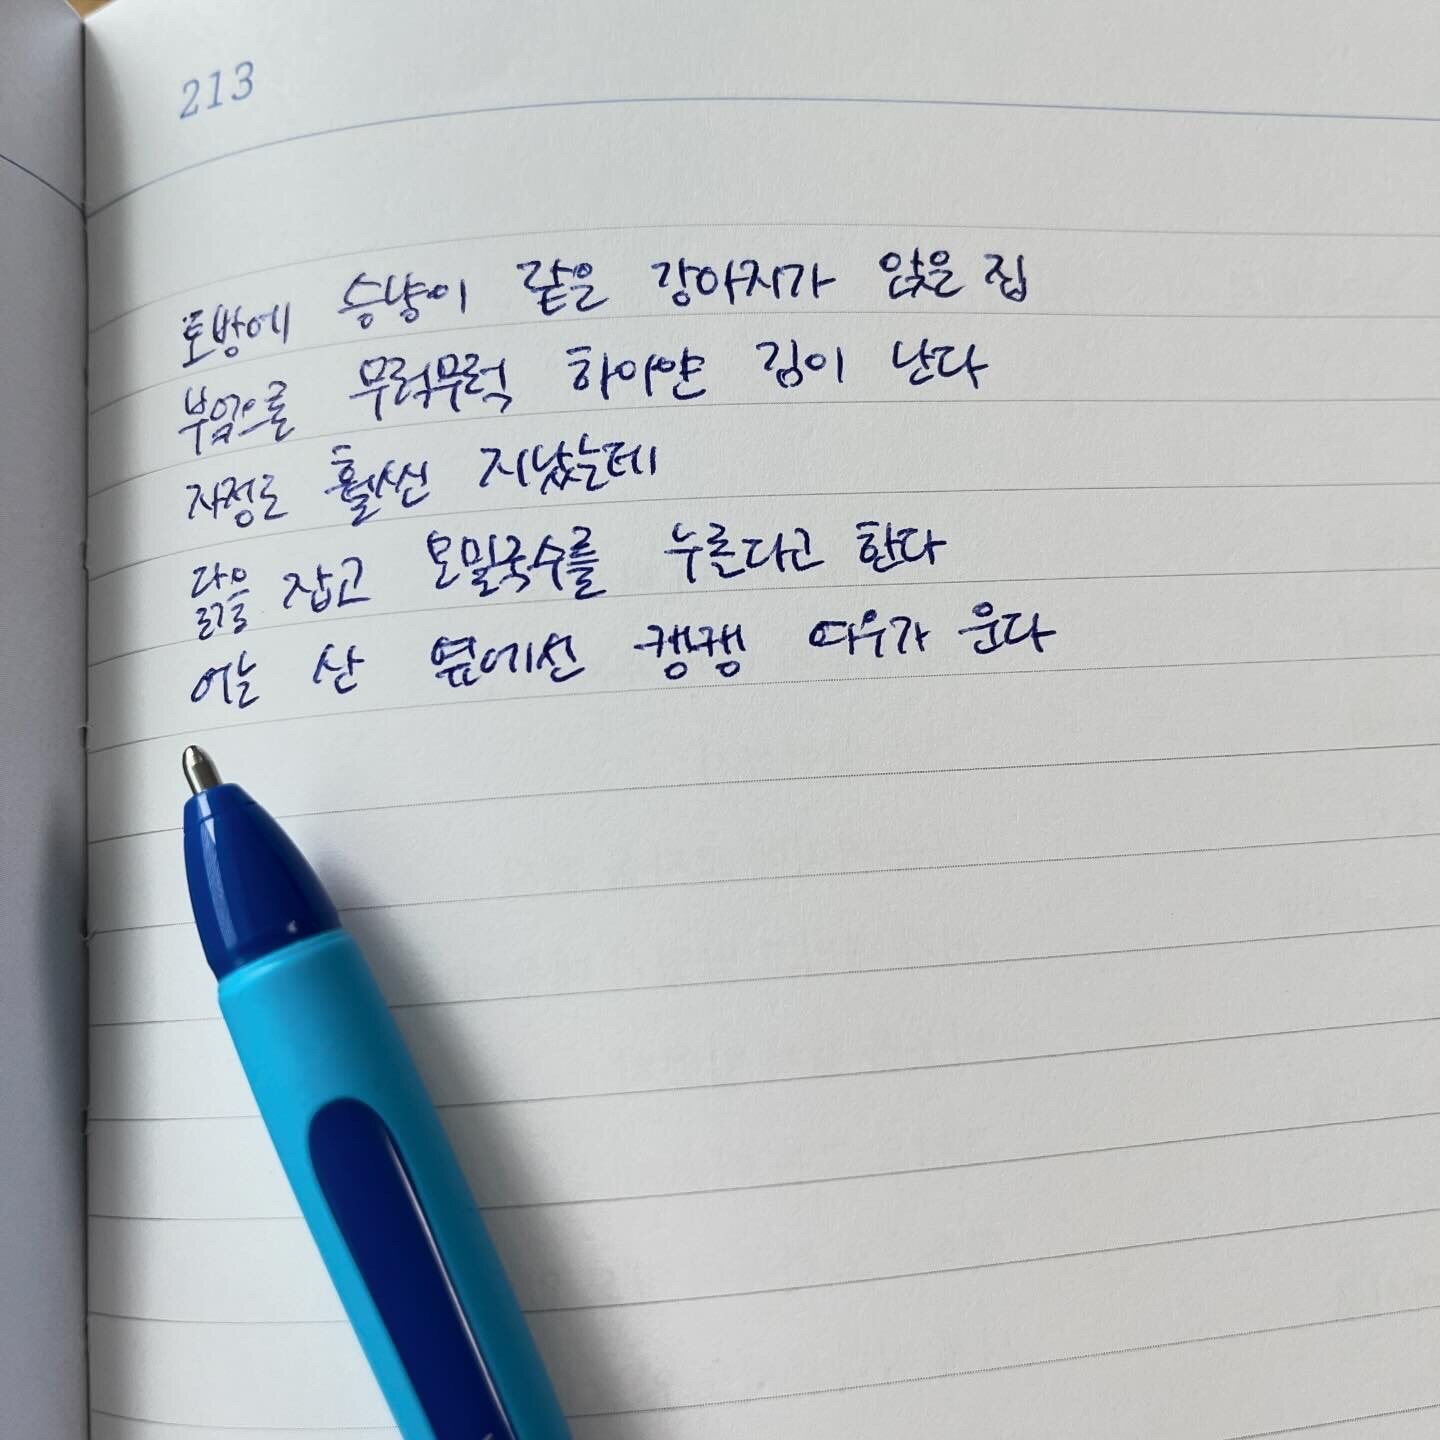 213
토방에 승냥이 같은 강아지가 앉은 집
부엌으론 무럭무럭 하이얀 김이 난다
자정도 훨씬 지났는데
닭을 잡고 모밀국수를 누른다고 한다
어늬 산 옆에선 캥캥 여우가 운다